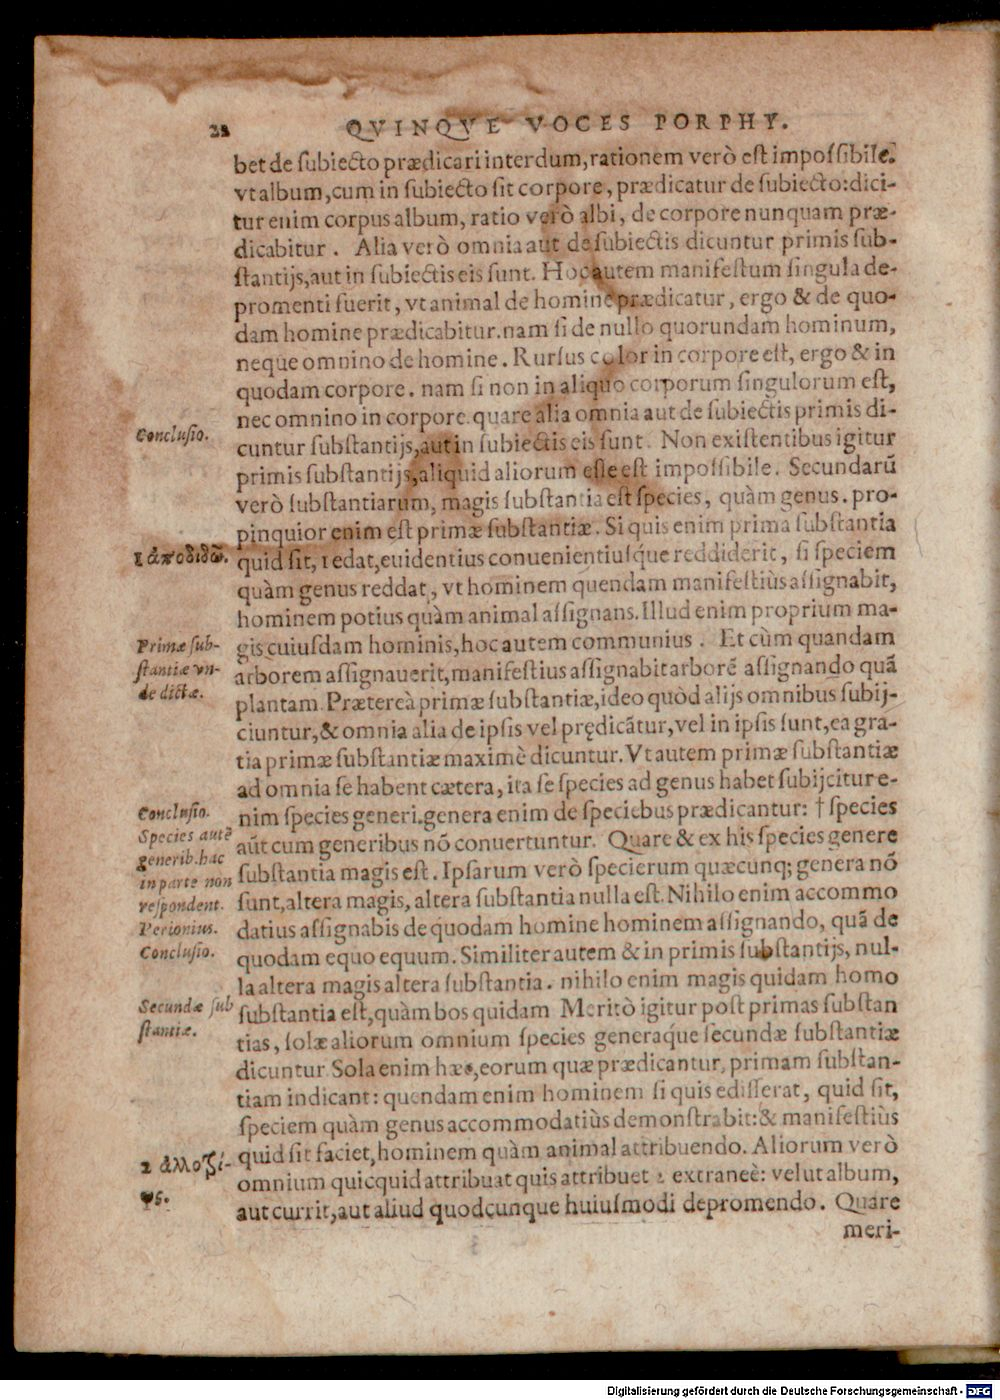 22 QVINQVE VOCES PORPHY.
bet de subiecto prædicari interdum, rationem verò est impossibile.
vt album, cum in subiecto sit corpore, prædicatur de subiecto: dici-
tur enim corpus album, ratio verò albi, de corpore nunquam præ-
dicabitur. Alia verò omnia aut de subiectis dicuntur primis sub-
stantijs, aut in subiectis eis sunt. Hoc autem manifestum singula de-
promenti fuerit, vt animal de homine prædicatur, ergo & de quo-
dam homine prædicabitur. nam si de nullo quorundam hominum,
neque omnino de homine. Rursus color in corpore est, ergo & in
quodam corpore. nam si non in aliquo corporum singulorum est,
nec omnino in corpore. quare alia omnia aut de subiectis primis di-
Conclusio.
cuntur substantijs, aut in subiectis eis sunt. Non existentibus igitur
primis substantijs, aliquid aliorum esse est impossibile. Secundarũ
verò substantiarum, magis substantia est species, quàm genus. pro-
pinquior enim est primæ substantiæ. Si quis enim prima substantia
1 ἀποδιδῶ.
quid sit, 1 edat, euidentius conuenientiusque reddiderit, si speciem
quàm genus reddat, vt hominem quendam manifestiùs assignabit,
hominem potius quàm animal assignans. Illud enim proprium ma-
Primæ sub-
gis cuiusdam hominis, hoc autem communius. Et cùm quandam
stantiæ vn-
arborem assignauerit, manifestius assignabit arborẽ assignando quã
de dictæ.
plantam. Prætereà primæ substantiæ, ideo quòd alijs omnibus subij-
ciuntur, & omnia alia de ipsis vel prędicãtur, vel in ipsis sunt, ea gra-
tia primæ substantiæ maximè dicuntur. Vt autem primæ substantiæ
ad omnia se habent cætera, ita se species ad genus habet subijcitur e-
Conclusio.
nim species generi. genera enim de speciebus prædicantur: † species
Species autẽ
aũt cum generibus nõ conuertuntur. Quare & ex his species genere
generib. hac
substantia magis est. Ipsarum verò specierum quæcunq; genera nõ
in parte non
respondent.
sunt, altera magis, altera substantia nulla est. Nihilo enim accommo
Perionius.
datius assignabis de quodam homine hominem assignando, quã de
Conclusio.
quodam equo equum. Similiter autem & in primis substantijs, nul-
la altera magis altera substantia. nihilo enim magis quidam homo
Secundæ sub
substantia est, quàm bos quidam Meritò igitur post primas substan
stantiæ.
tias, solæ aliorum omnium species generaque secundæ substantiæ
dicuntur. Sola enim hæc, eorum quæ prædicantur, primam substan-
tiam indicant: quendam enim hominem si quis edisserat, quid sit,
speciem quàm genus accommodatiùs demonstrabit: & manifestiùs
2 ἀλλοτρί-
quid sit faciet, hominem quàm animal attribuendo. Aliorum verò
ως.
omnium quicquid attribuat quis attribuet 2 extraneè: velut album,
aut currit, aut aliud quodcunque huiusmodi depromendo. Quare
meri-
Digitalisierung gefördert durch die Deutsche Forschungsgemeinschaft - DFG